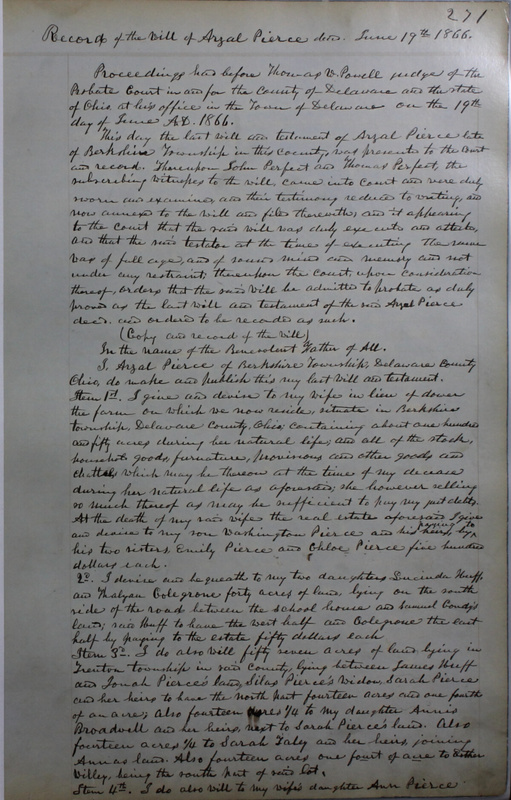 271
Record of the Will of Arzal Pierce decd. June 19th 1866.
Proceedings had before Thomas W. Powell judge of the
Probate Court in and for the County of Delaware and the state
of Ohio at his office in the Town of Delaware on the 19th
day of June A.D. 1866.
This day the last will and testament of Arzal Pierce late
of Berkshire Township in this County, was presented to the Court
and record. Thereupon John Perfect and Thomas Perfect, the
subscribing witnesses to the will, came into Court and were duly
sworn and examined, and their testimony reduced to writing, and
now annexed to the will and filed therewith; and it appearing
to the Court that the said will was duly executed and attested,
and that the said testator at the time of executing the same
was of full age, and of sound mind and memory and not
under any restraint; thereupon the Court, upon consideration
thereof, orders that the said will be admitted to probate as duly
proved as the last will and testament of the said Arzal Pierce
decd. and ordered to be recorded as such.
(Copy and record of the will)
In the name of the Benevolent Father of All.
I, Arzal Pierce of Berkshire Township, Delaware County
Ohio, do make and publish this my last will and testament.
Item 1st. I give and devise to my wife in lieu of dower
the farm on which we now reside, situate in Berkshire
township, Delaware County, Ohio, containing about one hundred
and fifty acres during her natural life, and all of the stock,
household goods, furnature, provisions and other goods and
chattels which may be thereon at the time of my decease
during her natural life as aforesaid; she however selling
so much thereof as may be sufficient to pay my just debts.
At the death of my said wife the real estate aforesaid I give
and devise to my son Washington Pierce and his heirs, by paying to
his two sisters, Emily Pierce and Chloe Pierce five hundred
dollars each.
2d. I devise and bequeath to my two daughters Lucinda Huff,
and Thalyan Colegrove forty acres of land, lying on the south
side of the road between the school house and Samuel Condy's
land; said Huff to have the west half and Colegrove the east
half by paying to the estate fifty dollars each
Item 3d. I do also will fifty seven acres of land lying in
Trenton township in said County, lying between James Huff
and Jonah Pierce's land, Silas Pierce's Widow, Sarah Pierce
and her heirs to have the north part fourteen acres and one fourth
of an acre; Also fourteen acres 1/4 to my daughter Annis
Broadwell and her heirs, next to Sarah Pierce's land. Also
fourteen acres 1/4 to Sarah Faley and her heirs, joining
Annas land. Also fourteen acres one fourt of acre to Esther
Willey, being the south part of said Lot.
Item 4th. I do also will to my wife's daughter Ann Pierce